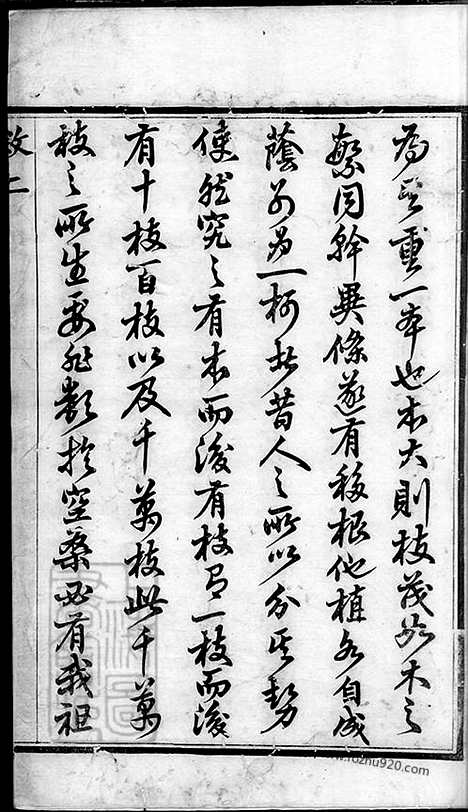 為其重一本也本大則枝茂如木之
繁同幹異條遂有移根他植各自成
蔭別為一柯此昔人之所以分其勢
使然究之有本而後有枝有一枝而後
有十枝百枝以及千萬枝此千萬
枝之所生要非類於空桑必有我祖
敘二
www.fozhu920.com